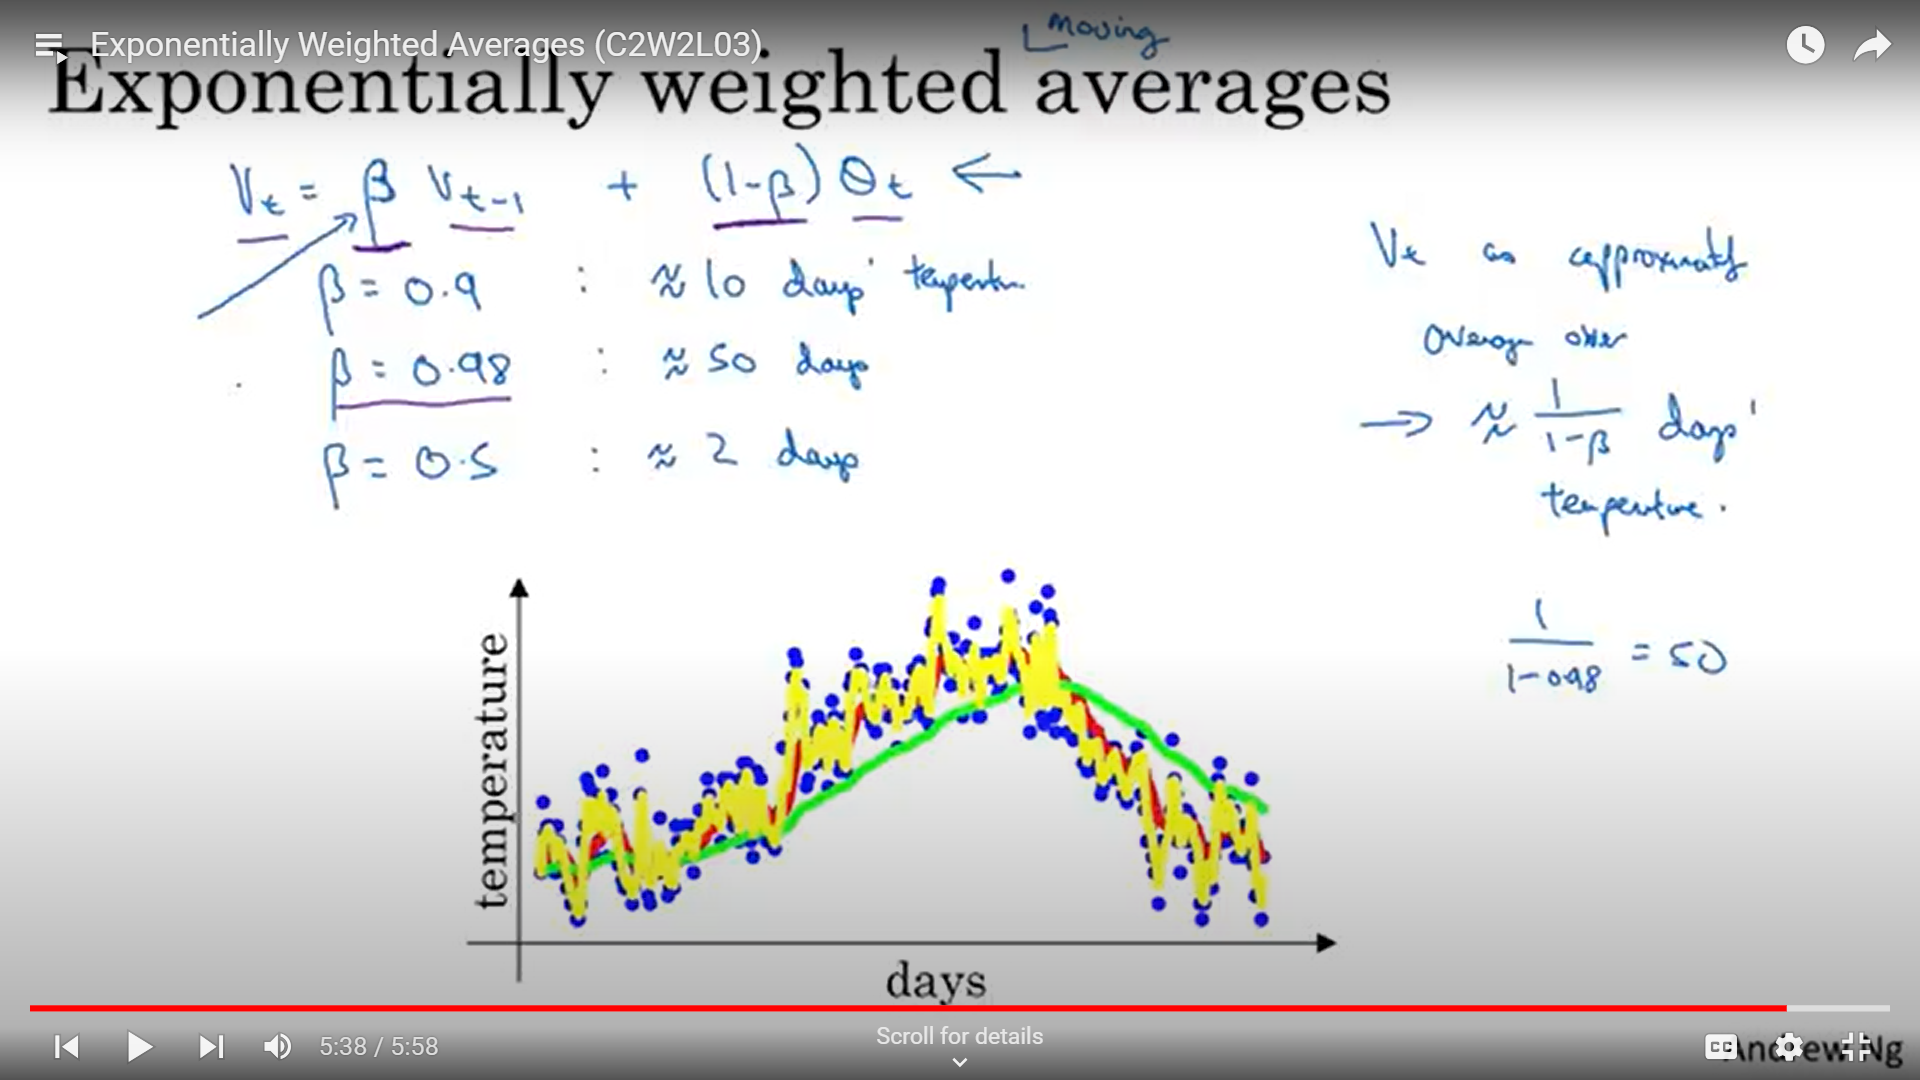 Exponentially Weighted Averages (C2W2L03)
moving
Exponentially weighted averages
Vt = β Vt-1 + (1-β) θt ←
β = 0.9 : ≈ 10 days' temperature
β = 0.98 : ≈ 50 days
β = 0.5 : ≈ 2 days
Vt as approximately
average over
→ ≈ 1/(1-β) days'
temperature.
1/(1-0.98) = 50
temperature
days
5:38 / 5:58
Scroll for details
CC
Andrew Ng